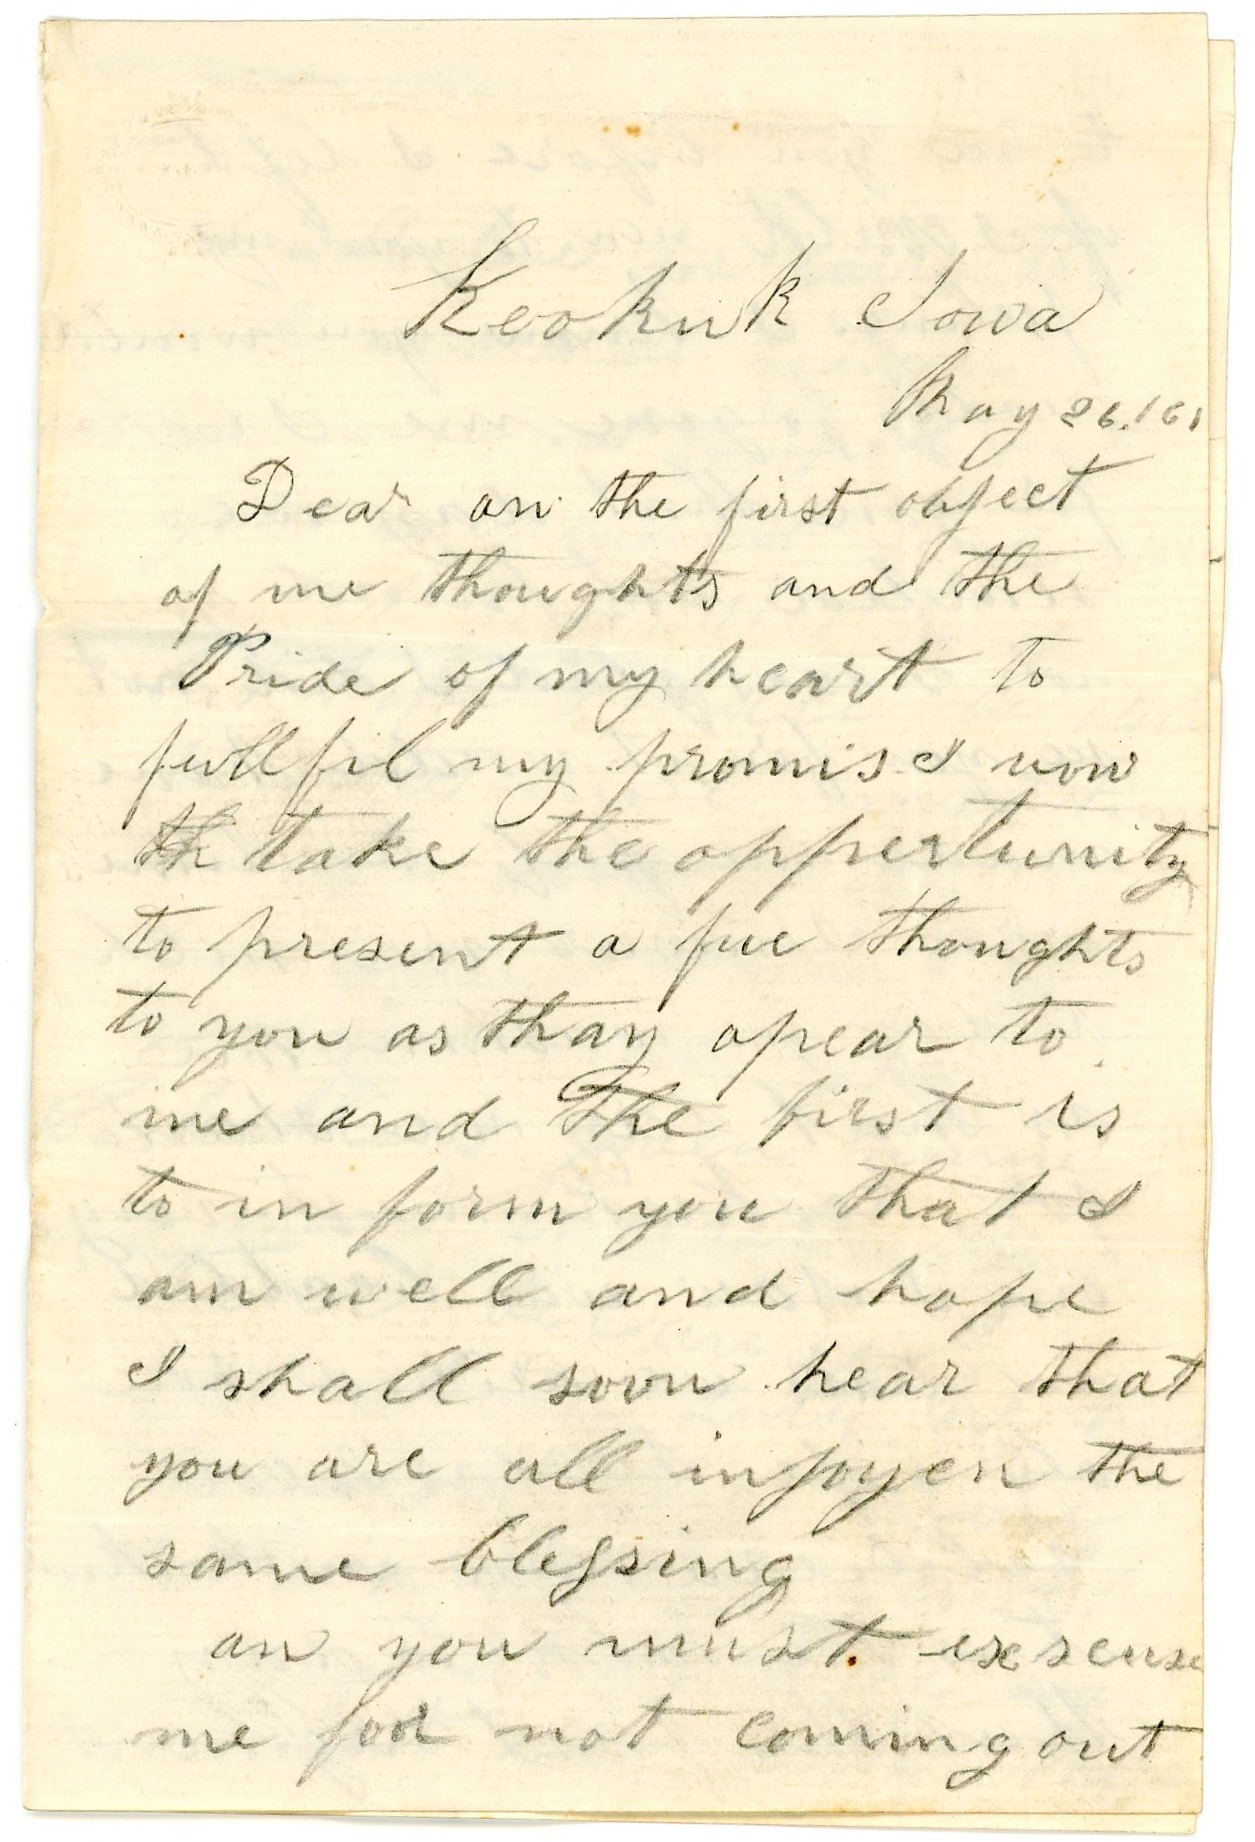 Keokuk Iowa
May 26. 161
Dear an the first object
of me thoughts and the
Pride of my heart to
fullfil my promis I now
th take the oppertunity
to present a fue thoughts
to you as thay apear to
me and the first is
to in form you that I
am well and hope
I shall soon hear that
you are all injoyen the
same blessing
an you must exscuse
me for not coming out